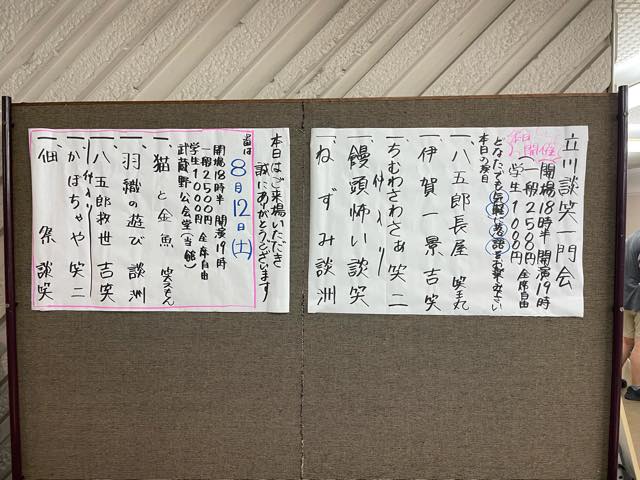 立川談笑一門会
本日開催
開場18時半 開演19時
一般2500円 全席自由
学生1000円
どなたでも気軽に落語をお楽しみ下さい
本日の演目
一、八五郎長屋 笑王丸
一、伊賀一景 吉笑
一、ちむわさわさぁ 笑二
仲入り
一、饅頭怖い 談笑
一、ねずみ 談洲
本日はご来場いただき
誠にありがとうございます
次回は
8月12日(土)
開場18時半 開演19時
一般2500円 全席自由
学生1000円
武蔵野公会堂(当館)
一、猫と金魚 笑えもん
一、羽織の遊び 談洲
一、八五郎救世 吉笑
仲入り
一、かぼちゃや 笑二
一、佃祭 談笑